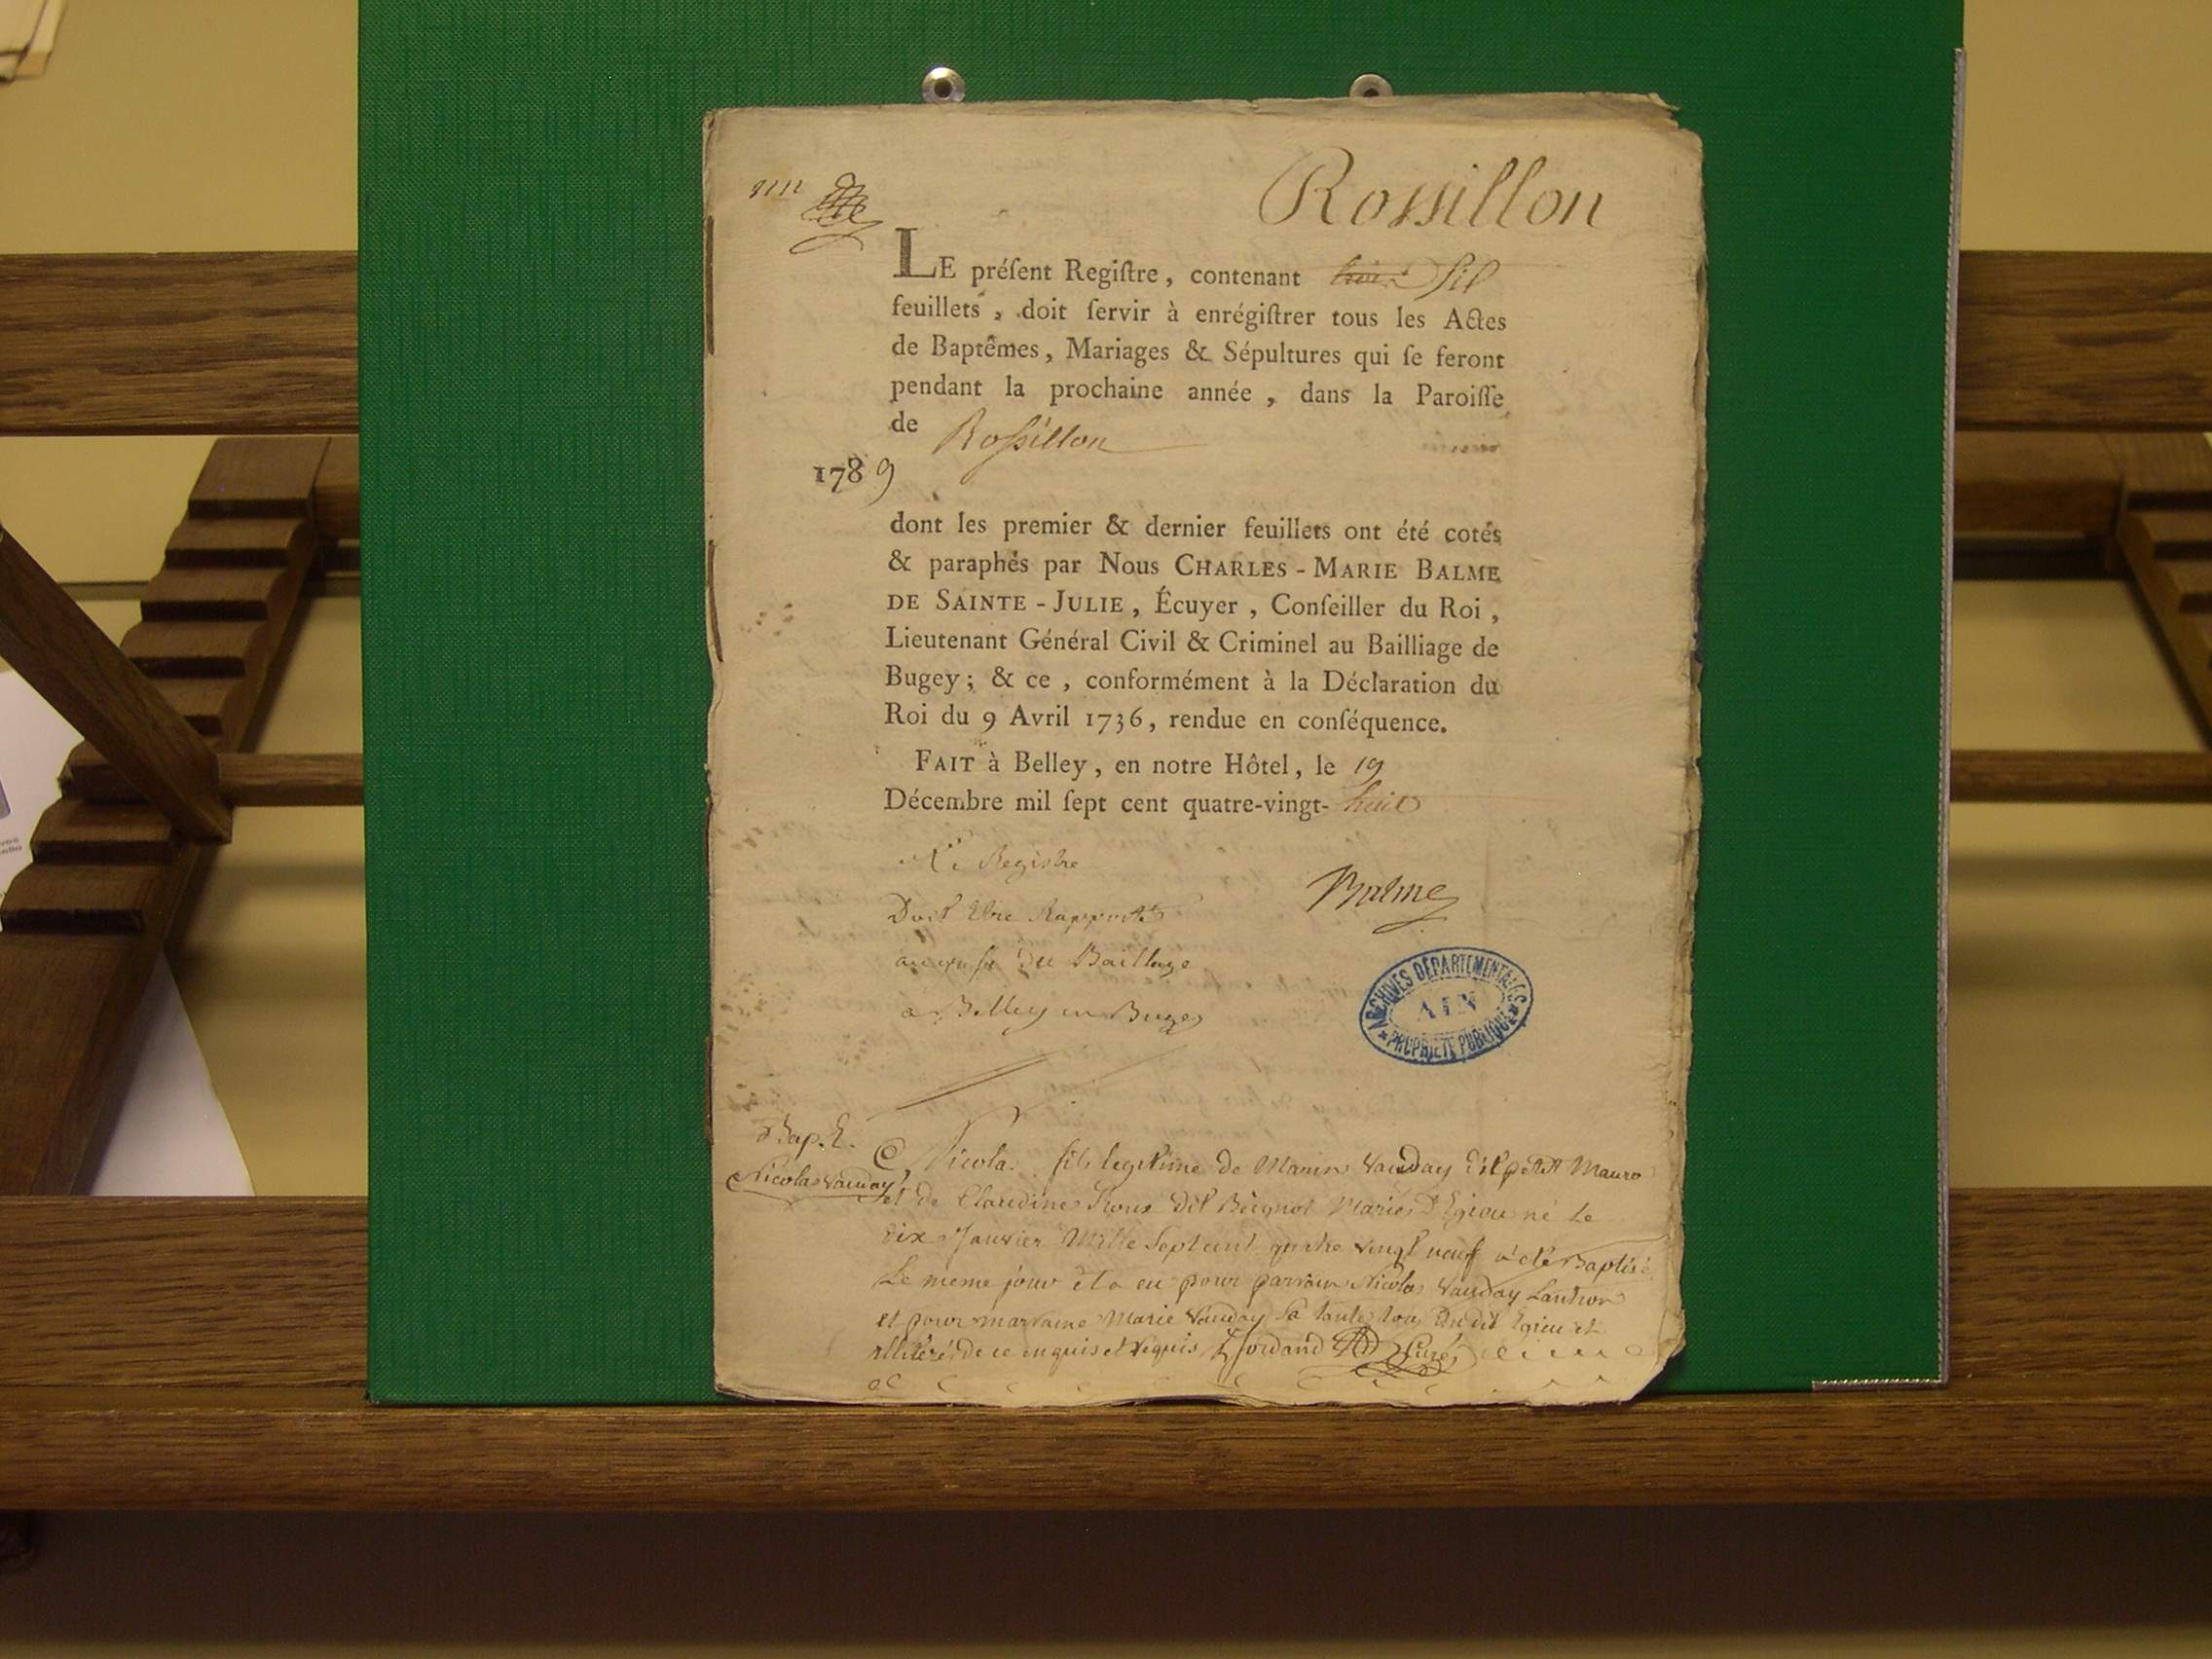 Rossillon
LE préſent Regiſtre, contenant
feuillets, doit ſervir à enrégiſtrer tous les Actes
de Baptêmes, Mariages & Sépultures qui ſe feront
pendant la prochaine année, dans la Paroiſſe
de Rossillon
1789
dont les premier & dernier feuillets ont été cotés
& paraphés par Nous CHARLES-MARIE BALME
DE SAINTE-JULIE, Écuyer, Conſeiller du Roi,
Lieutenant Général Civil & Criminel au Bailliage de
Bugey; & ce, conformément à la Déclaration du
Roi du 9 Avril 1736, rendue en conſéquence.
FAIT à Belley, en notre Hôtel, le 19
Décembre mil ſept cent quatre-vingt-huit
Registre
Balme
Doit Etre Rapporté
du Bailliage
a Belley en Bugey
ARCHIVES DÉPARTEMENTALES
AIN
PROPRIÉTÉ PUBLIQUE
Bap. E.
Nicolas Vauday
Nicola fils legitime de Marin Vauday dit petit Mauro
et de Claudine dit Mariés d'Egieu né Le
dix Janvier Mille Septcent quatre vingt neuf a été Baptisé
Le meme jour et a eu pour parrain Nicolas Vauday
et pour marraine Marie Vauday Sa tante tous dudit Egieu et
illiteré de ce enquis et requis Jordand Curé